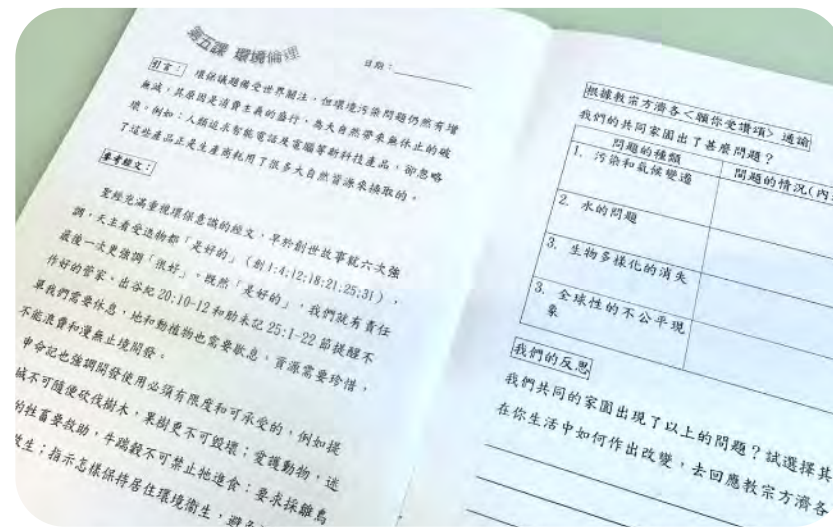 第五課 環境倫理
日期：
引言： 環保議題備受世界關注，但環境污染問題仍然有增
無減，其原因是消費主義的盛行，為大自然帶來無休止的破
壞，例如：人類追求智能電話及電腦等新科技產品，卻忽略
了這些產品正是生產商耗用了很多大自然資源來換取的。
參考經文：
聖經充滿重視環保意識的經文，早於創世故事就六次強
調，天主看受造物都「是好的」(創1:4;12;18;21;25;31)，
最後一次更強調「很好」。既然「是好的」，我們就有責任
作好的管家。出谷紀20:10-12和肋未記25:1-22節提醒不
單我們需要休息，地和動植物也需要歇息，資源需要珍惜，
不能浪費和漫無止境開發。
申命記也強調開發使用必須有限度和可承受的，例如提
城不可隨便砍伐樹木，果樹更不可毀壞；愛護動物，迷
的牲畜要救助，牛踹穀不可禁止牠進食；要求採雛鳥
放生；指示怎樣保持居住環境衞生，避免
根據教宗方濟各<願你受讚頌> 通諭
我們的共同家園出了甚麼問題？
問題的種類
問題的情況(內
1. 污染和氣候變遷
2. 水的問題
3. 生物多樣化的消失
3. 全球性的不公平現
象
我們的反思
我們共同的家園出現了以上的問題？試選擇其
在你生活中如何作出改變，去回應教宗方濟各